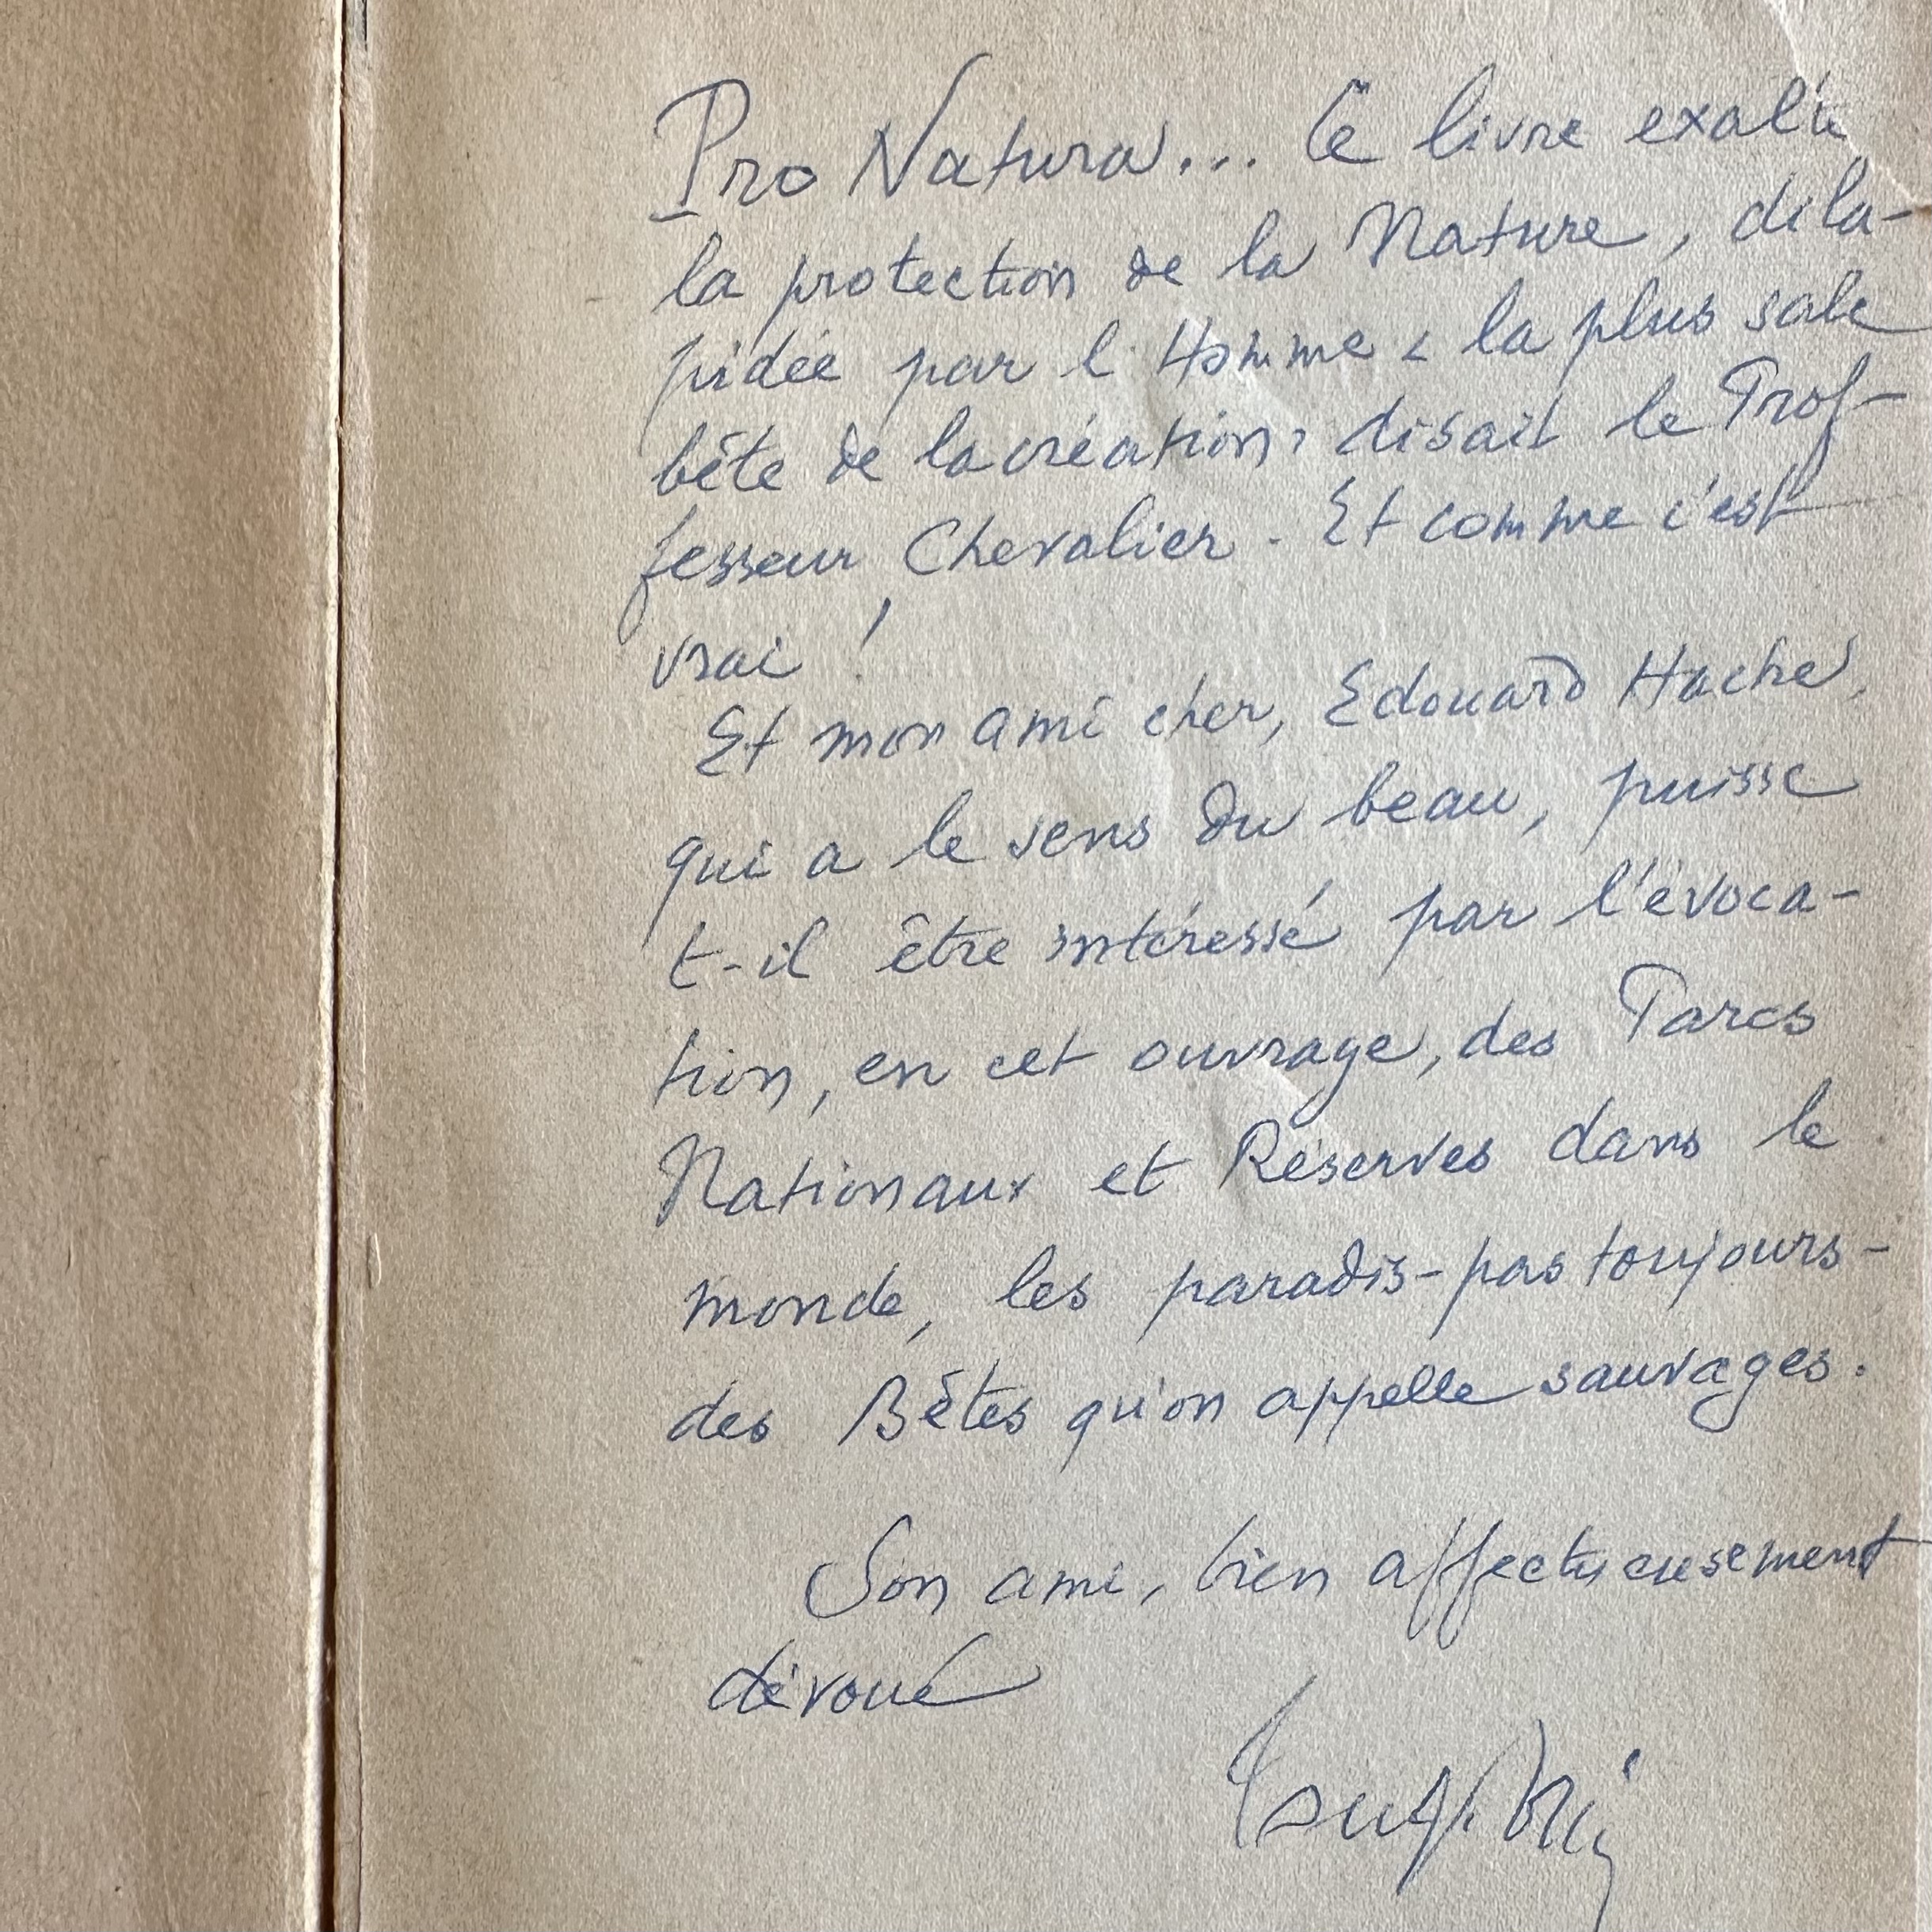 Pro Natura... Ce livre exalte
la protection de la Nature, dila-
pidée par l'Homme « la plus sale
bête de la création » disait le Prof-
fesseur Chevalier. Et comme c'est
vrai !
Et mon ami cher, Edouard Hache,
qui a le sens du beau, puisse
t-il être intéressé par l'évoca-
tion, en cet ouvrage, des Parcs
Nationaux et Réserves dans le
monde, les paradis - pas toujours -
des Bêtes qu'on appelle sauvages.
Son ami, bien affectueusement
dévoué